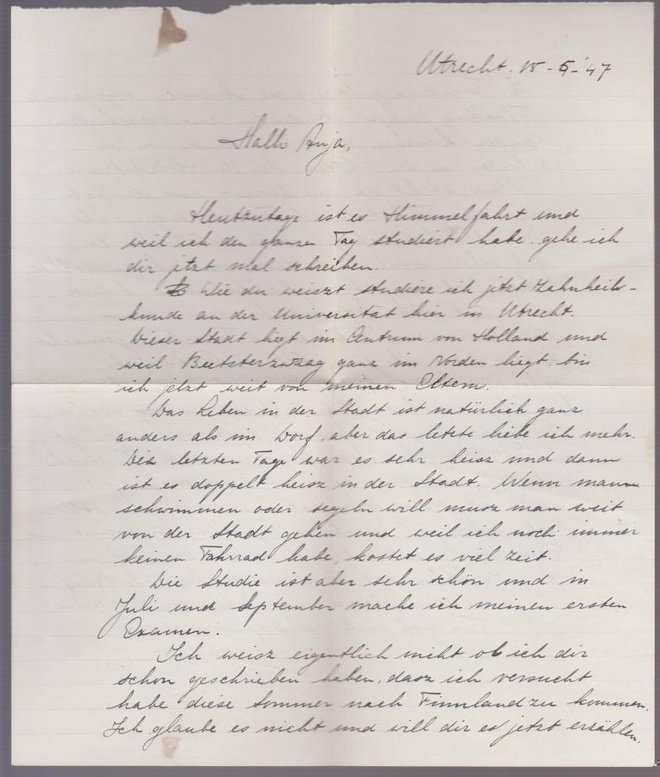 Utrecht. 15-5-'47
Hallo Anja,
Heutzutage ist es Himmelfahrt und
weil ich den ganzen Tag studiert habe, gehe ich
dir jetzt mal schreiben.
Wie du weiszt studiere ich jetzt Zahnheil-
kunde an der Universität hier in Utrecht.
Dieser Stadt liegt im Centrum von Holland und
weil Beetsterzwaag ganz im Norden liegt, bin
ich jetzt weit von meinen Eltern.
Das Leben in der Stadt ist natürlich ganz
anders als im Dorf, aber das letzte liebe ich mehr.
Die letzten Tage war es sehr heisz und dann
ist es doppelt heisz in der Stadt. Wenn man
schwimmen oder segeln will musz man weit
von der Stadt gehen und weil ich noch immer
keinen Fahrrad habe, kostet es viel Zeit.
Die Studie ist aber sehr schön und in
Juli und September mache ich meinen ersten
Examen.
Ich weisz eigentlich nicht ob ich dir
schon geschrieben haben, dasz ich versucht
habe diese Sommer nach Finnland zu kommen.
Ich glaube es nicht und will dir es jetzt erzählen.